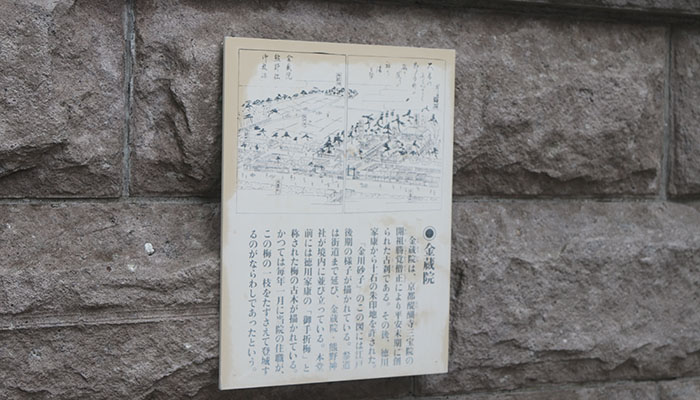 金蔵院
熊野社
御殿跡
●金蔵院
金蔵院は、京都醍醐寺三宝院の
開祖勝覚僧正により平安末期に創
られた古刹である。その後、徳川
家康から十石の朱印地を許された。
「金川砂子」のこの図には江戸
後期の様子が描かれている。参道
は街道まで延び、金蔵院・熊野神
社が境内に並び立っている。本堂
前には徳川家康の「御手折梅」と
称された梅の古木が描かれている。
かつては毎年一月に当院の住職が、
この梅の一枝をたずさえて登城す
るのがならわしであったという。